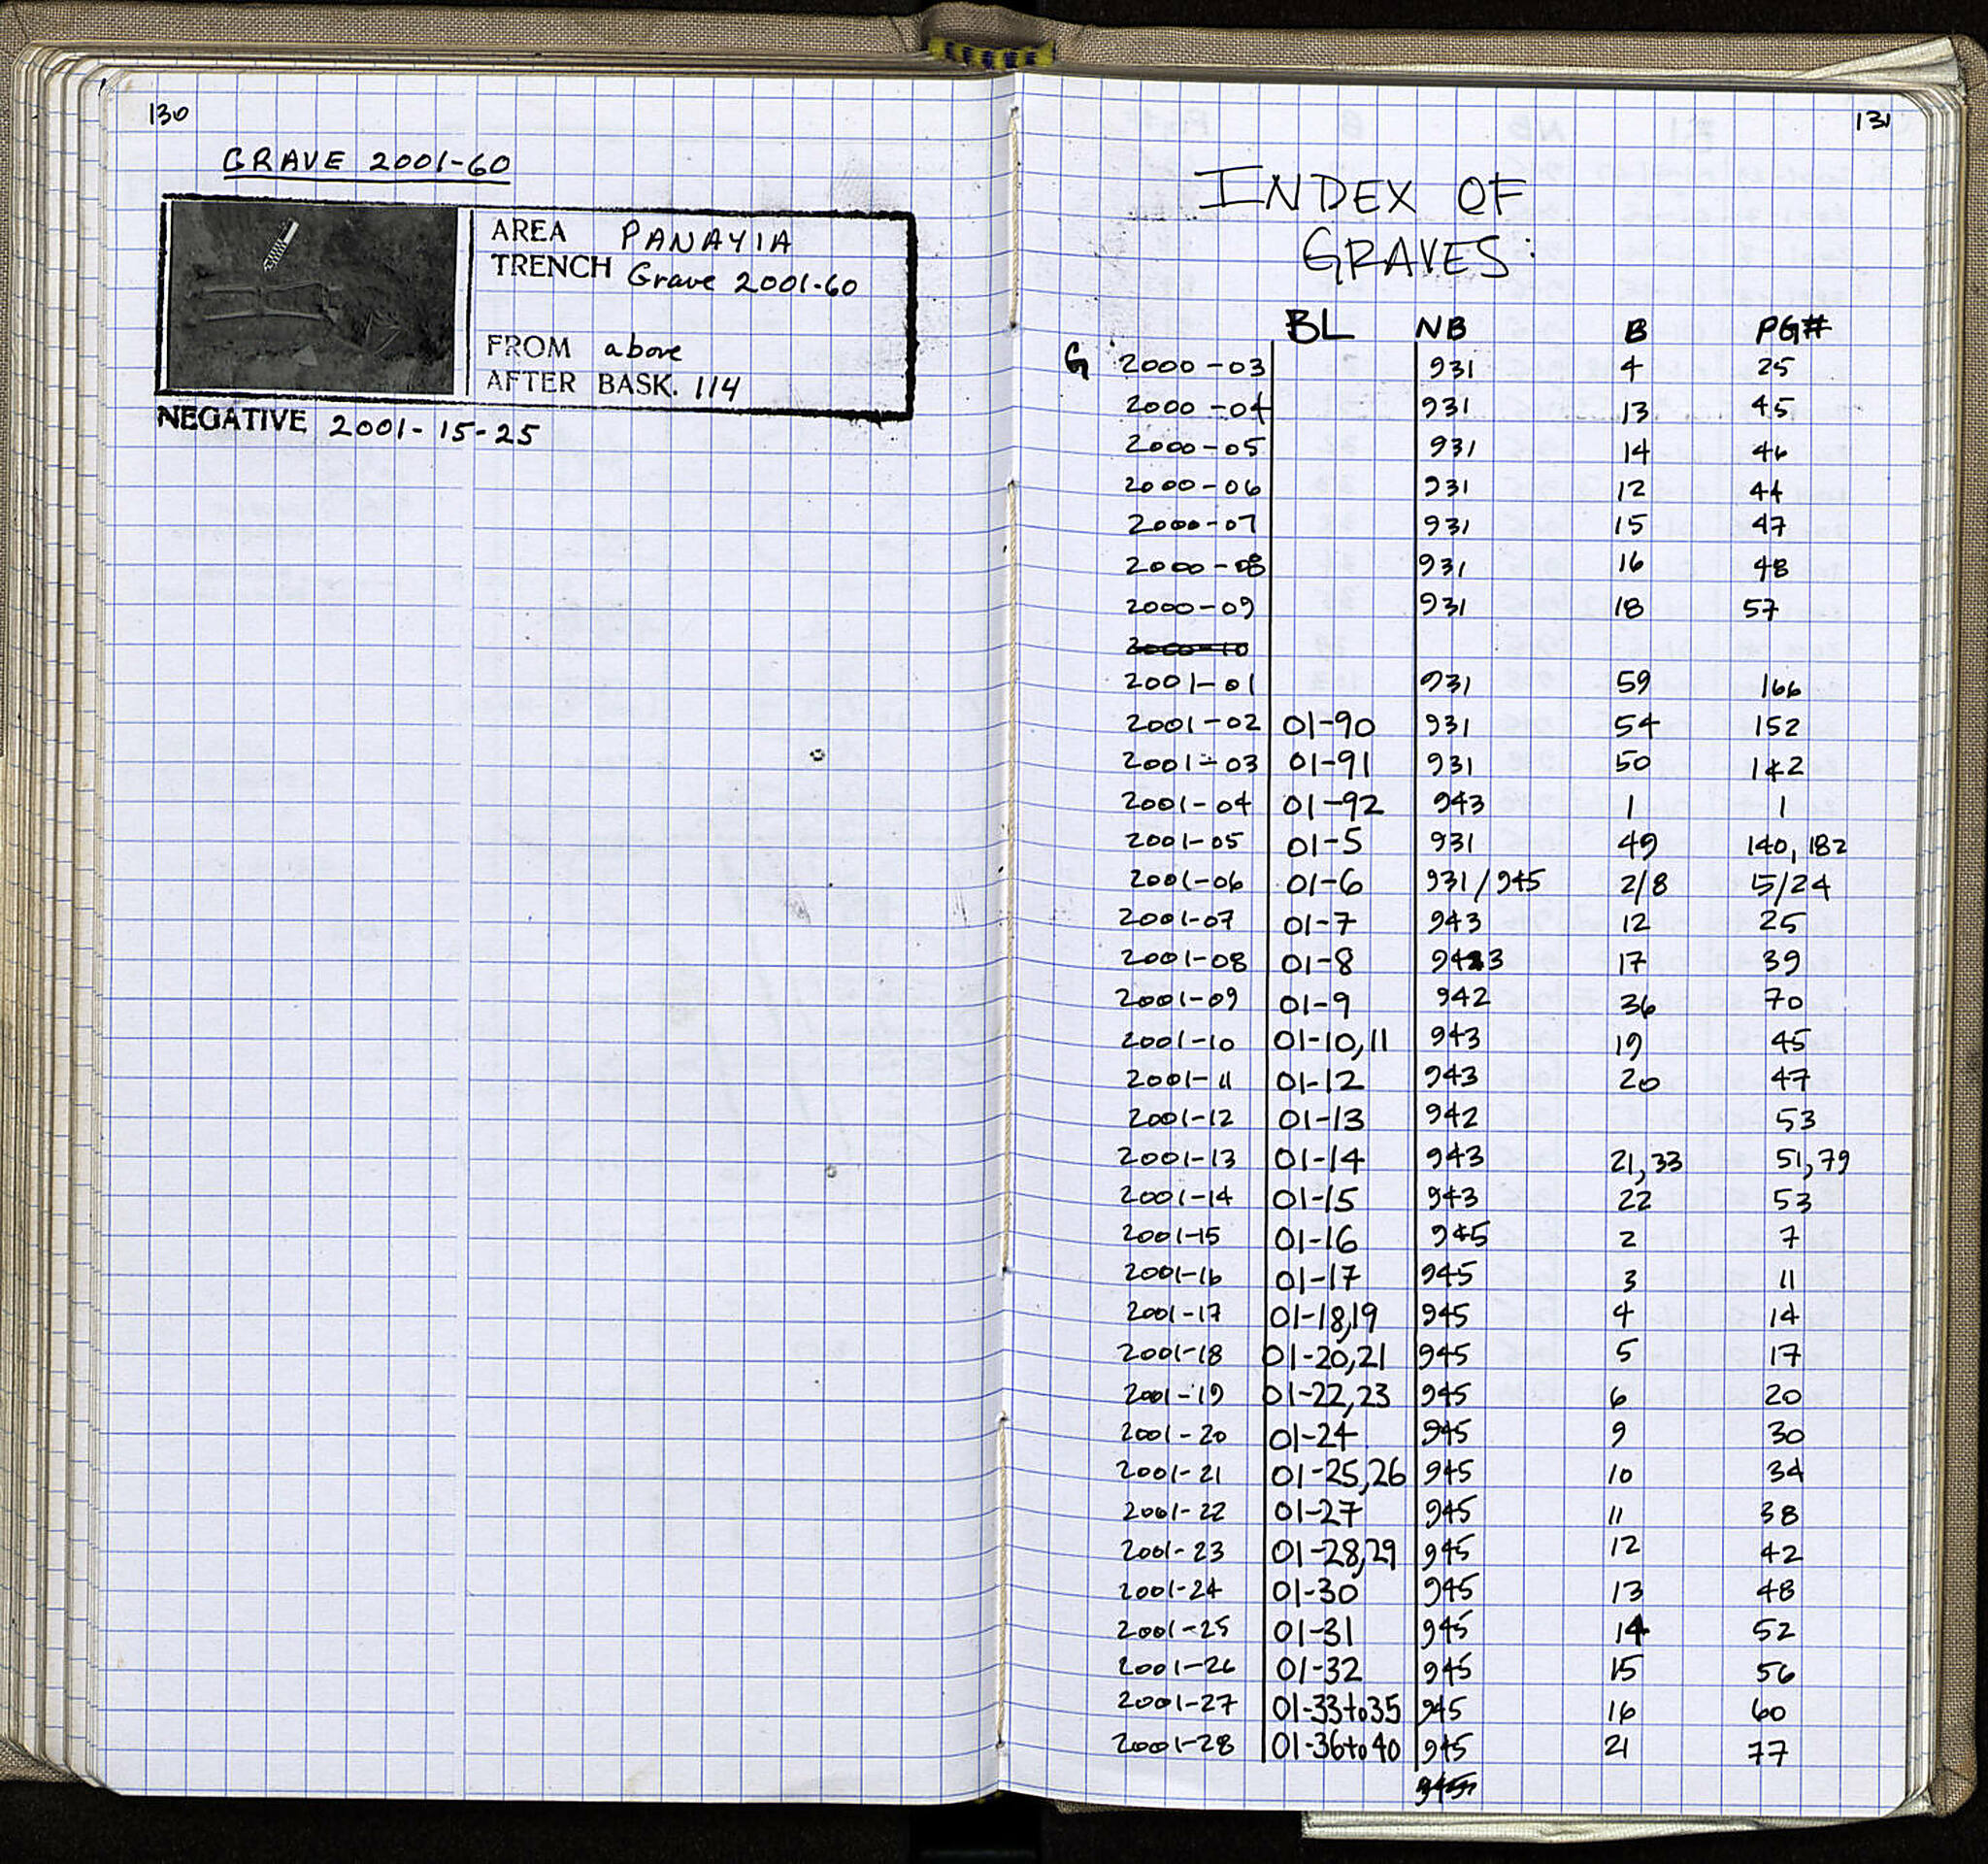 130
GRAVE 2001-60
AREA PANAYIA
TRENCH Grave 2001-60
FROM above
AFTER BASK. 114
NEGATIVE 2001-15-25
131
INDEX OF
GRAVES:
BL NB B PG#
G 2000-03 931 4 25
2000-04 931 13 45
2000-05 931 14 46
2000-06 931 12 44
2000-07 931 15 47
2000-08 931 16 48
2000-09 931 18 57
2000-10
2001-01 931 59 166
2001-02 01-90 931 54 152
2001-03 01-91 931 50 142
2001-04 01-92 943 1 1
2001-05 01-5 931 49 140, 182
2001-06 01-6 931/945 2/8 5/24
2001-07 01-7 943 12 25
2001-08 01-8 943 17 39
2001-09 01-9 942 36 70
2001-10 01-10,11 943 19 45
2001-11 01-12 943 20 47
2001-12 01-13 942 53
2001-13 01-14 943 21,33 51,79
2001-14 01-15 943 22 53
2001-15 01-16 945 2 7
2001-16 01-17 945 3 11
2001-17 01-18,19 945 4 14
2001-18 01-20,21 945 5 17
2001-19 01-22,23 945 6 20
2001-20 01-24 945 9 30
2001-21 01-25,26 945 10 34
2001-22 01-27 945 11 38
2001-23 01-28,29 945 12 42
2001-24 01-30 945 13 48
2001-25 01-31 945 14 52
2001-26 01-32 945 15 56
2001-27 01-33to35 945 16 60
2001-28 01-36to40 945 21 77
945